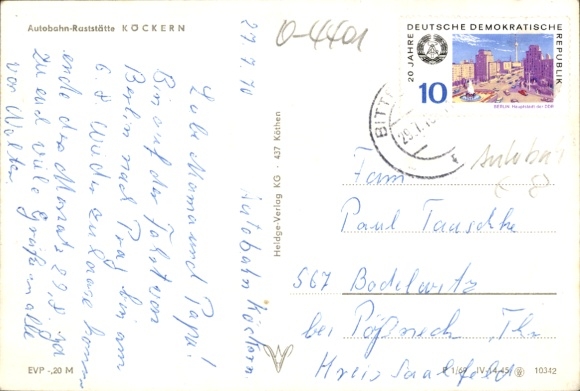 Autobahn-Raststätte KÖCKERN
29.7.70
Autobahn Köckern.
Liebe Mama und Papa!
Bin auf der Fahrt von
Berlin nach Prag bin am
6.8. wieder zuhause
ende des Monats 29.8
zu euch viele Grüße
von Walter
EVP -,20 M
Heldge-Verlag KG · 437 Köthen
0-4401
DEUTSCHE DEMOKRATISCHE REPUBLIK
20 JAHRE
10
BERLIN, Hauptstadt der DDR
BITT
29.7.
Autobah
Fam
Paul Tauschke
567 Bodelwitz
bei Pößneck, Th
Kreis Saalfeld
P 1/69 IV-14-45
10342